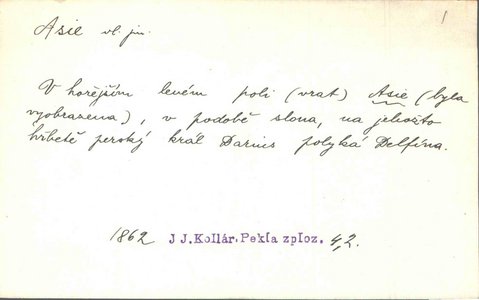 1
Asie vl. jm.
V hořejším levém poli (vrat) Asie (byla
vyobrazena), v podobě slona, na jehožto
hřbetě perský král Darius polyká Delfína.
1862 J J. Kollár. Pekla zploz. 4,2.